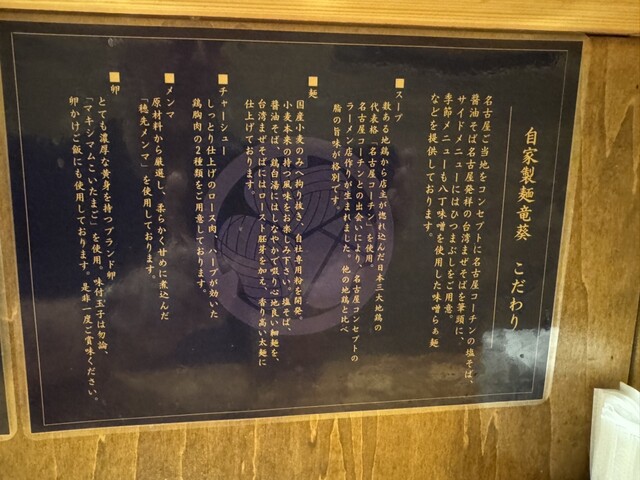 自家製麺竜葵 こだわり
名古屋ご当地をコンセプトに名古屋コーチンの塩そば、
醤油そば、名古屋発祥の台湾まぜそばを筆頭に、
サイドメニューにはひつまぶしをご用意。
季節メニューも八丁味噌を使用した味噌らぁ麺
などを提供しております。
■スープ
数ある地鶏から店主が惚れ込んだ日本三大地鶏の
代表格「名古屋コーチン」を使用。
名古屋コーチンとの出会いにより、名古屋コンセプトの
ラーメン店作りが生まれました。他の地鶏と比べ
脂の旨味が格別です。
■麺
国産小麦のみへ拘り抜き、自社専用粉を開発。
小麦本来の持つ風味をお楽しみ下さい。塩そば、
醤油そば、鶏白湯にはしなやかで啜り心地良い細麺を、
台湾まぜそばにはロースト胚芽を加え、香り高い太麺に
仕上げております。
■チャーシュー
しっとり仕上げのロース肉、スープが効いた
鶏胸肉の2種類をご用意しております。
■メンマ
原材料から厳選し、柔らかく甘めに煮込んだ
「穂先メンマ」を使用しております。
■卵
とても濃厚な黄身を持つブランド卵
「マキシマムこいたまご」を使用。味付玉子は勿論、
卵かけご飯にも使用しております。是非一度ご賞味ください。